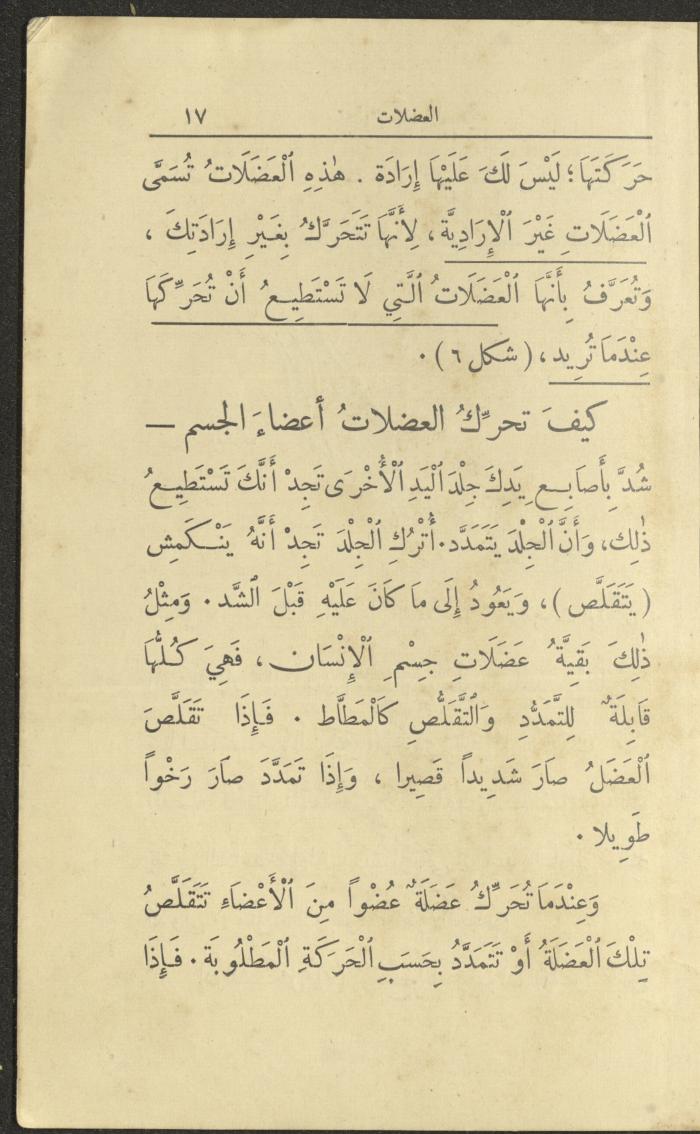 العضلات ١٧
حَرَكَتَهَا؛ لَيْسَ لَكَ عَلَيْهَا إِرَادَة. هٰذِهِ ٱلْعَضَلَاتُ تُسَمَّى
ٱلْعَضَلَاتِ غَيْرَ ٱلْإِرَادِيَّة، لِأَنَّهَا تَتَحَرَّكُ بِغَيْرِ إِرَادَتِكَ،
وَتُعَرَّفُ بِأَنَّهَا ٱلْعَضَلَاتُ ٱلَّتِي لَا تَسْتَطِيعُ أَنْ تُحَرِّكَهَا
عِنْدَمَا تُرِيد، (شكل ٦).
كيفَ تحرِّكُ العضلاتُ أعضاءَ الجسم —
شُدَّ بِأَصَابِعِ يَدِكَ جِلْدَ ٱلْيَدِ ٱلْأُخْرَى تَجِدْ أَنَّكَ تَسْتَطِيعُ
ذٰلِك، وَأَنَّ ٱلْجِلْدَ يَتَمَدَّد. أُتْرُكِ ٱلْجِلْدَ تَجِدْ أَنَّهُ يَنْكَمِش
(يَتَقَلَّص)، وَيَعُودُ إِلَى مَا كَانَ عَلَيْهِ قَبْلَ ٱلشَّد. وَمِثْلُ
ذٰلِكَ بَقِيَّةُ عَضَلَاتِ جِسْمِ ٱلْإِنْسَان، فَهِيَ كُلُّهَا
قَابِلَةٌ لِلتَّمَدُّدِ وَٱلتَّقَلُّصِ كَٱلْمَطَّاط. فَإِذَا تَقَلَّصَ
ٱلْعَضَلُ صَارَ شَدِيداً قَصِيرا، وَإِذَا تَمَدَّدَ صَارَ رَخْواً
طَوِيلا.
وَعِنْدَمَا تُحَرِّكُ عَضَلَةٌ عُضْواً مِنَ ٱلْأَعْضَاءِ تَتَقَلَّصُ
تِلْكَ ٱلْعَضَلَةُ أَوْ تَتَمَدَّدُ بِحَسَبِ ٱلْحَرَكَةِ ٱلْمَطْلُوبَة. فَإِذَا